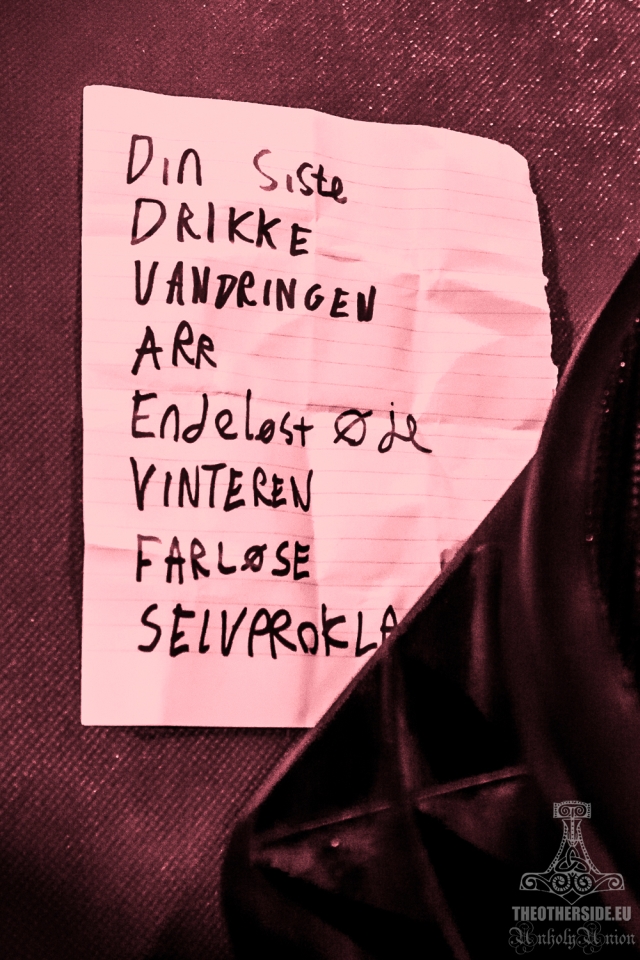 Din siste
DRIKKE
VANDRINGEN
ARR
Endeløst øje
VINTEREN
FARLØSE
SELVPROKLA
THEOTHERSIDE.EU
UnholyUnion